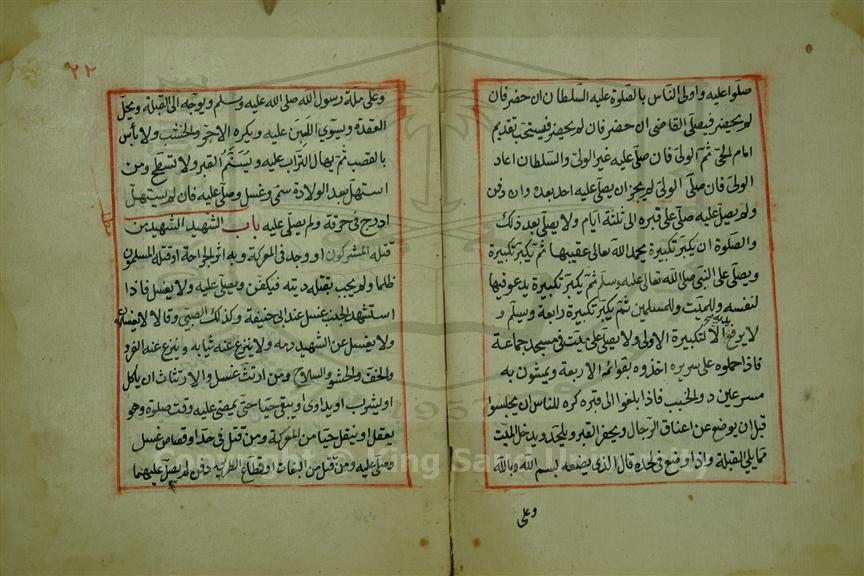 صلوا عليه واولى الناس بالصلوة عليه السلطان ان حضر فان
لم يحضر فيصلى القاضى ان حضر فان لم يحضر فيستحب تقديم
امام الحى ثم الولى فان صلى عليه غير الولى والسلطان اعاد
الولى فان صلى الولى لم يجز ان يصلى عليه احد بعده وان دفن
ولم يصل عليه صلى على قبره الى ثلثة ايام ولا يصلى بعد ذلك
والصلوة ان يكبر تكبيرة يحمد الله تعالى عقيبها ثم يكبر تكبيرة
ويصلى على النبى صلى الله تعالى عليه وسلم ثم يكبر تكبيرة يدعو فيها
لنفسه وللميت وللمسلمين ثم يكبر تكبيرة رابعة ويسلم و
لا يرفع يديه الا لتكبيرة الاولى ولا يصلى على ميت فى مسجد جماعة
فاذا حملوه على سريره اخذوه بقوائمه الاربعة ويمشون به
مسرعين دون الخبب فاذا بلغوا الى قبره كره للناس ان يجلسوا
قبل ان يوضع عن اعناق الرجال ويحفر القبر ويلحد ويدخل الميت
مما يلى القبلة واذا وضع فى لحده قال الذى يضعه بسم الله وبالله
وعلى
٢٢
وعلى ملة رسول الله صلى الله عليه وسلم ويوجه الى القبلة ويحل
العقدة ويسوى اللبن عليه ويكره الاجر والخشب ولا بأس
بالقصب ثم يهال التراب عليه ويسنم القبر ولا تسطح ومن
استهل بعد الولادة سمى وغسل وصلى عليه فان لم يستهل
ادرج فى خرقة ولم يصلى عليه باب الشهيد الشهيد من
قتله المشركون او وجد فى المعركة وبه اثر الجراحة او قتله المسلمون
ظلما ولم يجب بقتله ديته فيكفن ويصلى عليه ولا يغسل فاذا
استشهد الجنب غسل عند ابى حنيفة وكذلك الصبى وقالا لا يغسلان
ولا يغسل عن الشهيد دمه ولا ينزع عنه ثيابه وينزع عنه الفرو
والخف والحشو والسلاح ومن ارتث غسل والارتثاث ان يأكل
او يشرب او يداوى او يبقى حيا حتى يمضى عليه وقت صلوة وهو
يعقل او ينقل حيا من المعركة ومن قتل فى حد او قصاص غسل
وصلى عليه ومن قتل من البغاة او قطاع الطريق دفن لم يصل عليهما
Copyright © King Saud University
1957